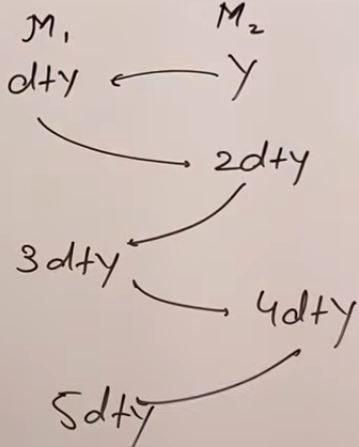 M₁ M₂
d+y y
2d+y
3d+y
4d+y
5d+y